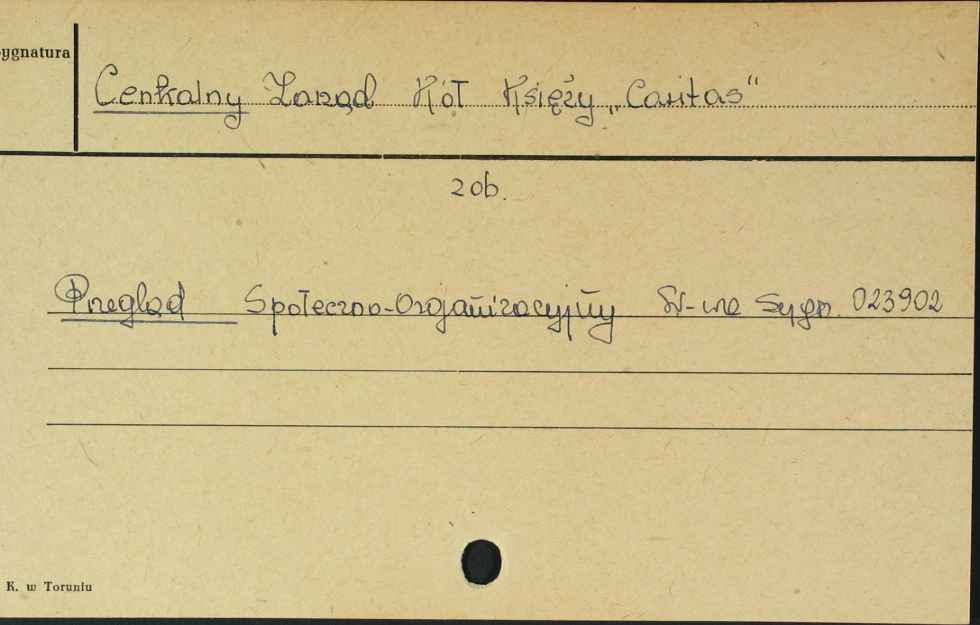 ygnatura
Centralny Zarząd Kół Księży „Caritas"
zob.
Przegląd Społeczno-Organizacyjny W-wa Sygn. 023902
K. w Toruniu